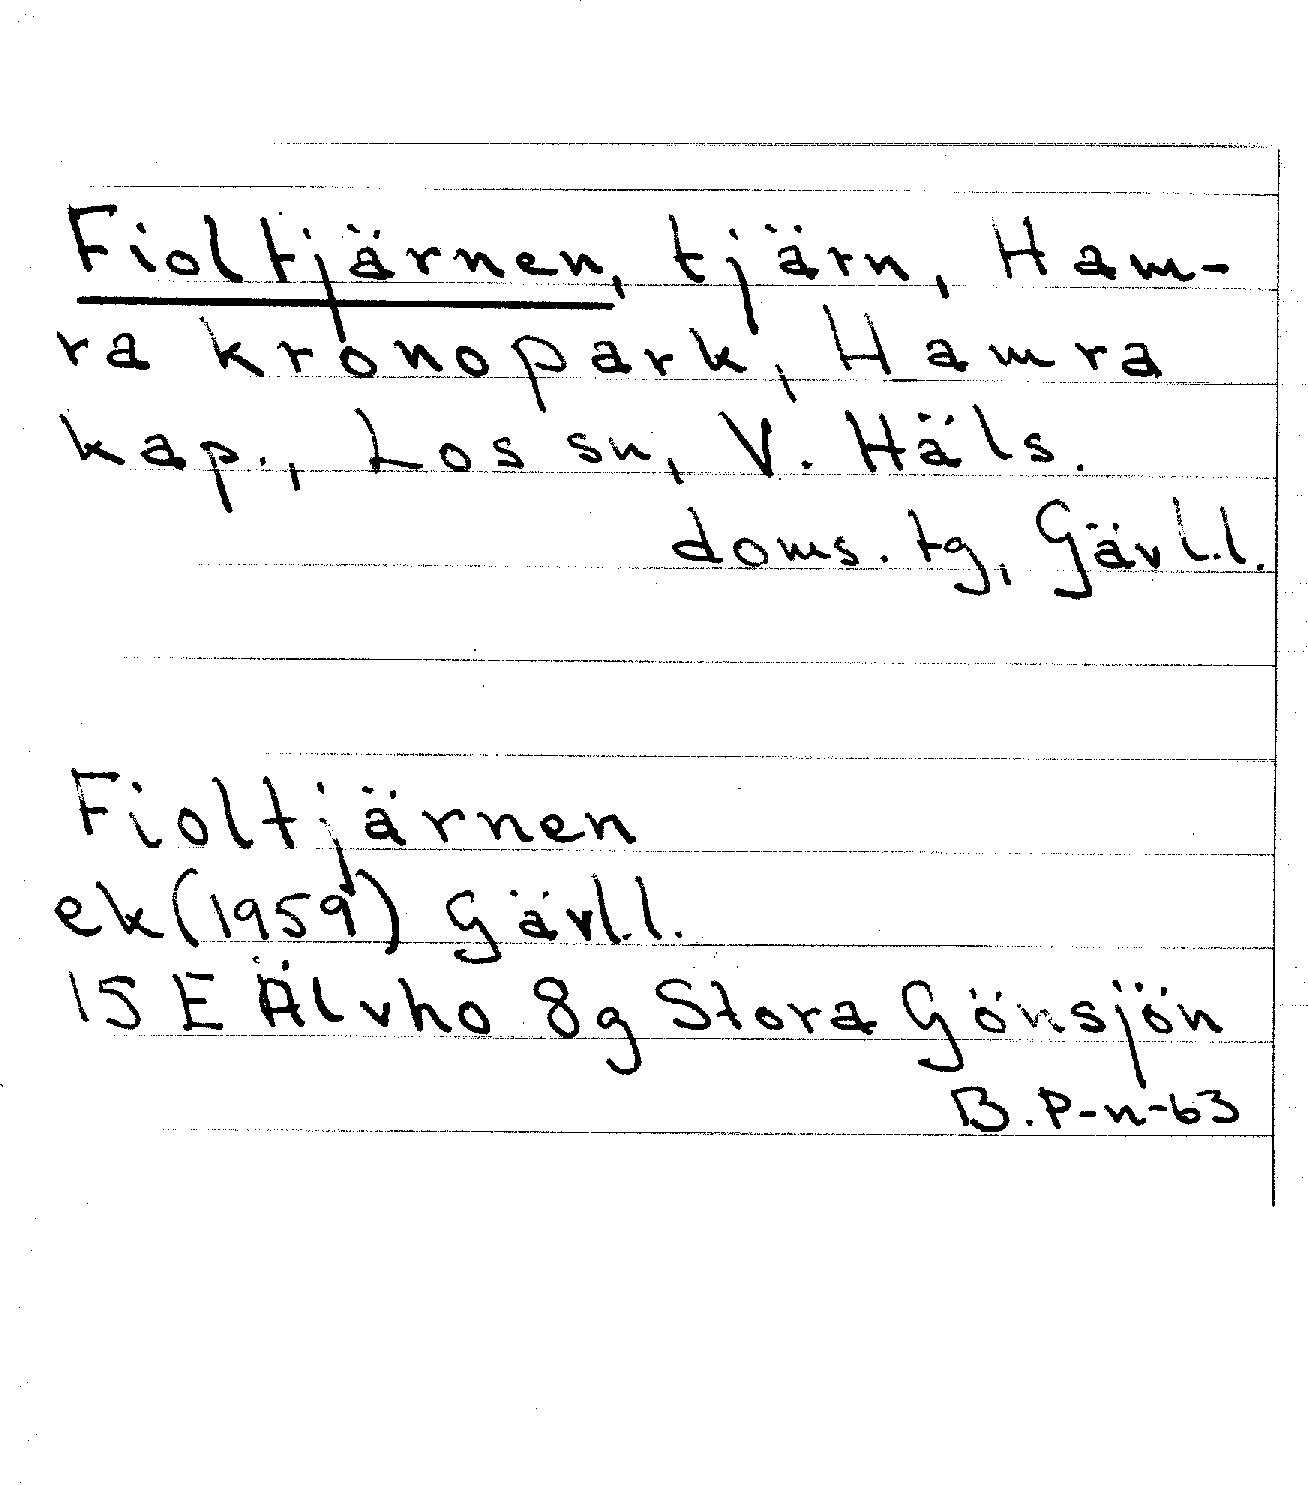 Fioltjärnen, tjärn, Ham-
ra kronopark, Hamra
kap., Los sn, V. Häls.
doms. tg, Gävl.l.
Fioltjärnen
ek(1959) Gävl.l.
15 E Älvho 8g Stora Gönsjön
B. P-n-63